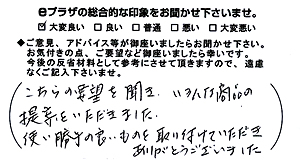 eプラザの総合的な印象をお聞かせ下さいませ。
☑大変良い □良い □普通 □悪い □大変悪い
◆ご意見、アドバイス等が御座いましたらお聞かせ下さい。
お気付きの点、ご要望など御座いましたら幸いです。
今後の反省材料として参考にさせて頂きますので、遠慮
なくご記入下さいませ。
こちらの要望を聞き、いろんな商品の
提案をいただきました。
使い勝手の良いものを取り付けていただき
ありがとうございました